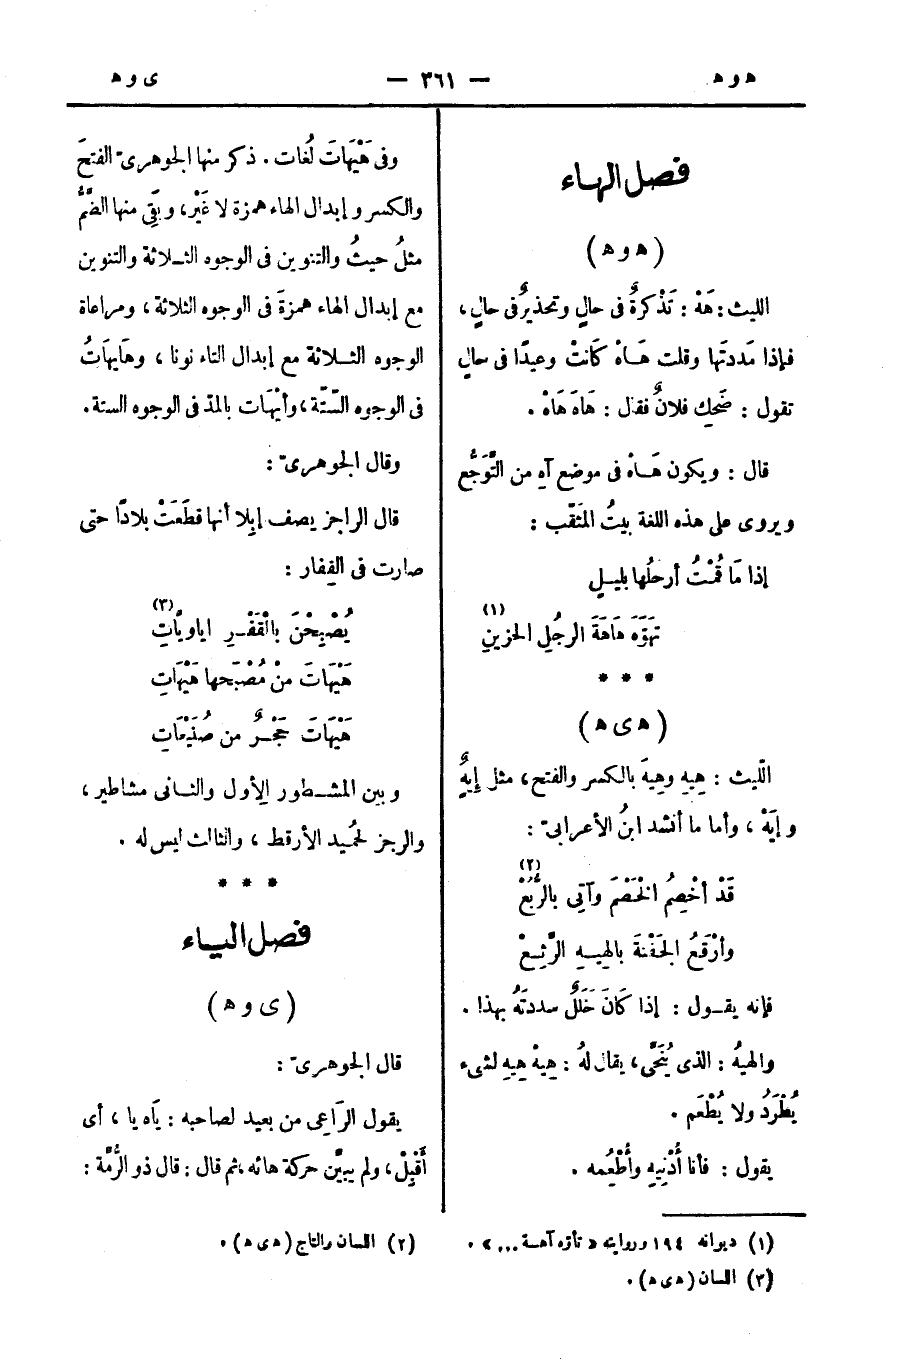 هوه — ٣٦١ — ى وه
فصل الهاء
(هوه)
الليث: هَهْ : تَذْكرةٌ فى حالٍ وتحذيرٌ فى حالٍ ،
فإذا مَددتَها وقلت هَـاهْ كَانتْ وعيدًا فى حالٍ
تقول : ضَحِك فلانٌ فقال : هَاهَ هَاهْ .
قال : ويكون هَـاهْ فى موضع آهِ من التَّوَجُّع
ويروى على هذه اللغة بيتُ المثَقِّب :
إذا مَا قُمْتُ أرحلُها بليـلٍ
تَهَوَّه هَاهَةَ الرجُلِ الحزينِ (١)
* * *
(هى ه)
اللّيث : هِيهِ وهِيهَ بالكسر والفتح، مثل إيهٍ
وإيَهْ ، وأما ما أنشد ابنُ الأعرابىّ :
قَدْ أخْصِمُ الخَصْمَ وآتِى بالرُّبُعْ (٢)
وأرْقَعُ الجَفْنَةَ بالهِيـهِ الرَّثِـعْ
فإنه يقـول : إذا كَانَ خَلَلٌ سددتَهُ بهذا .
والهيهُ : الذى يُنَحَّى، يقال لهُ : هِيهْ هِيهِ لشىء
يُطْرَدُ ولا يُطْعَم .
يقول : فأنا أُدْنِيهِ وأُطْعِمُه .
وفى هَيْهَاتَ لُغات . ذكر منها الجوهرىّ الفتحَ
والكسر وإبدال الهاء همزة لا غَيْر، وبَقِى منها الضَّمُّ
مثلُ حيثُ والتنوين فى الوجوه الثـلاثة والتنوين
مع إبدال الهاء همزةَ فى الوجوه الثلاثة ، ومراعاة
الوجوه الثـلاثة مع إبدال التاء نونا ، وهَايهَاتُ
فى الوجوه السِّتّة، وأيْهَات بالمدّ فى الوجوه الستة.
وقال الجوهرىّ :
قال الراجز يصف إبِلا أنها قطَعَتْ بلادًا حتى
صارت فى القِفار :
يُصْبِحْنَ بالْقَفْـرِ اياويَّاتِ (٣)
هَيْهَاتَ منْ مُصْبَحها هَيْهَاتِ
هَيْهَاتَ حَجْـرٌ من صُنَيْعَاتِ
وبين المشـطور الأول والثـانى مشاطير ،
والرجز لحُميد الأرقط ، والثالث ليس له .
* * *
فصل اليـاء
(ى وه)
قال الجوهرىّ :
يقول الرّاعِى من بعيد لصاحبه : يَاه يا ، أى
أَقْبِلْ، ولم يبيّن حركة هائه، ثم قال : قال ذو الرُّمّة :
(١) ديوانه ١٩٤ وروايته « تأوّه آهـة ... » .
(٢) اللسان والتاج (هى ه) .
(٣) اللسان (هى ه) .